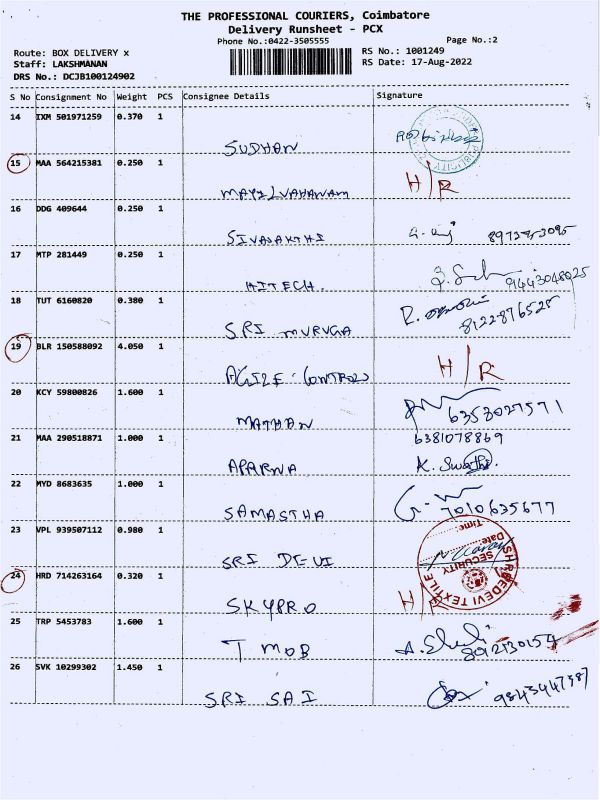 THE PROFESSIONAL COURIERS, Coimbatore
Delivery Runsheet - PCX
Phone No.:0422-3505555
Page No.:2
Route: BOX DELIVERY x
RS No.: 1001249
Staff: LAKSHMANAN
RS Date: 17-Aug-2022
DRS No.: DCJB100124902
S No Consignment No Weight PCS Consignee Details Signature
14 IXM 501971259 0.370 1
SUDHAN
15 MAA 564215381 0.250 1
H/R
MAYILVAHANAM
16 DDG 409644 0.250 1
SIVASAKTHI
17 MTP 281449 0.250 1
HITECH.
9443048025
18 TUT 6160820 0.380 1
SRI MURUGA
8122876525
19 BLR 150588092 4.050 1
H/R
AGILE CONTROLS
20 KCY 59800826 1.600 1
MATHAN
6358027571
21 MAA 290518871 1.000 1
6381078869
APARNA
K. Swathi
22 MYD 8683635 1.000 1
SAMASTHA
7010635677
23 VPL 939507112 0.980 1
Time:
Date:
SECURITY
SHREEDEVI TEXTILE
SRI DEVI
24 HRD 714263164 0.320 1
H/R
SKYPRO
25 TRP 5453783 1.600 1
T MOB
8012130154
26 SVK 10299302 1.450 1
SRI SAI
9843447587